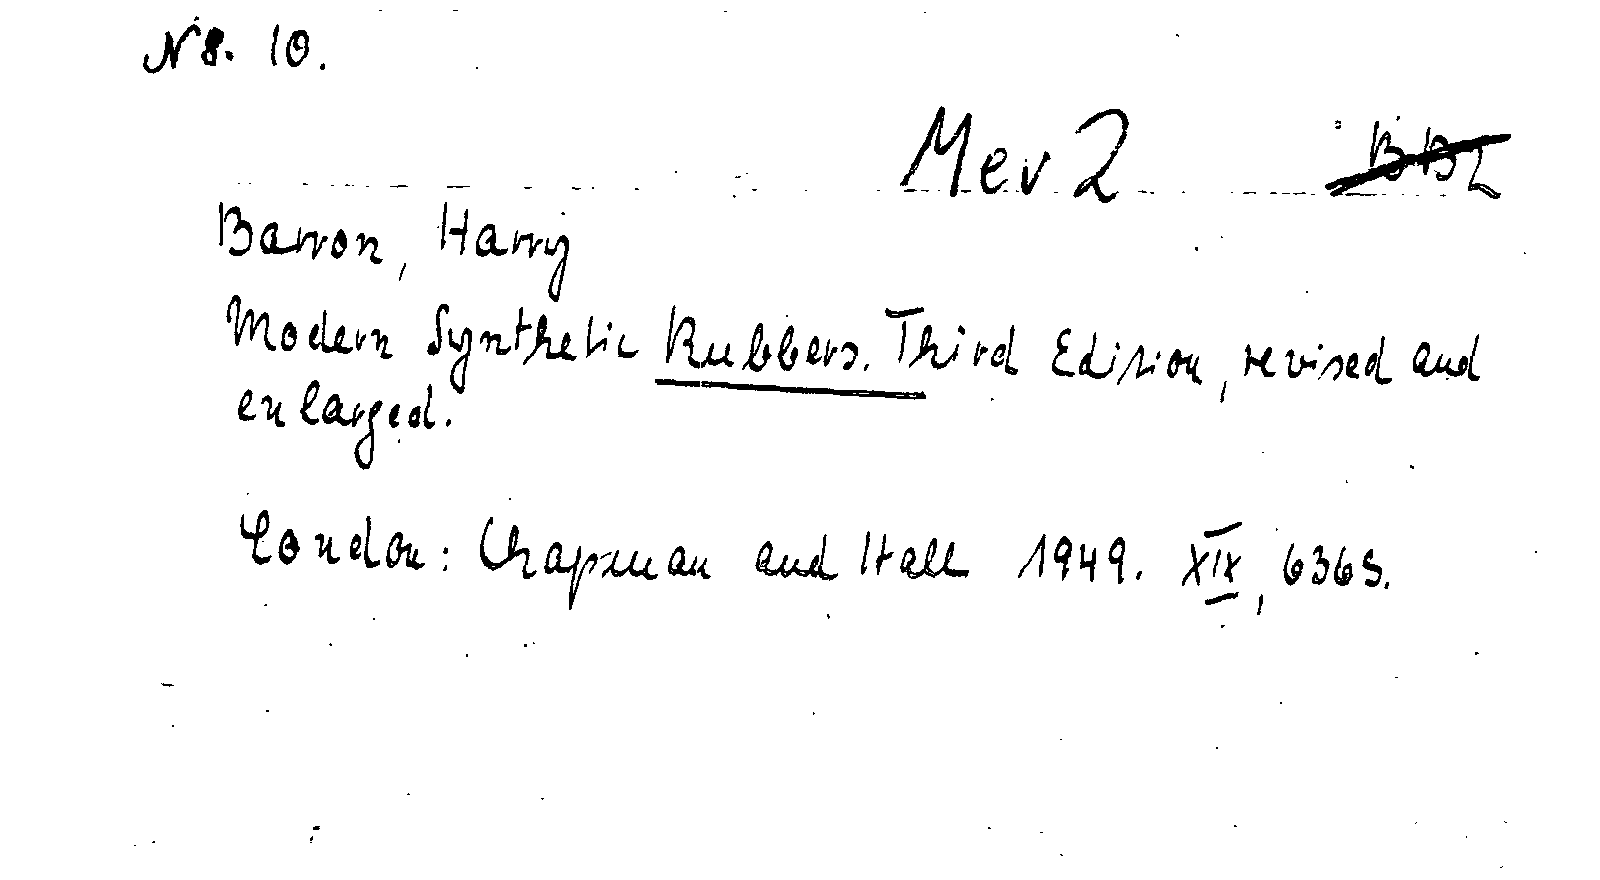 N 8. 10.
Mev 2
Barron, Harry
Modern Synthetic Rubbers. Third Edition, revised and
enlarged.
London: Chapman and Hall 1949. XIX, 636 S.